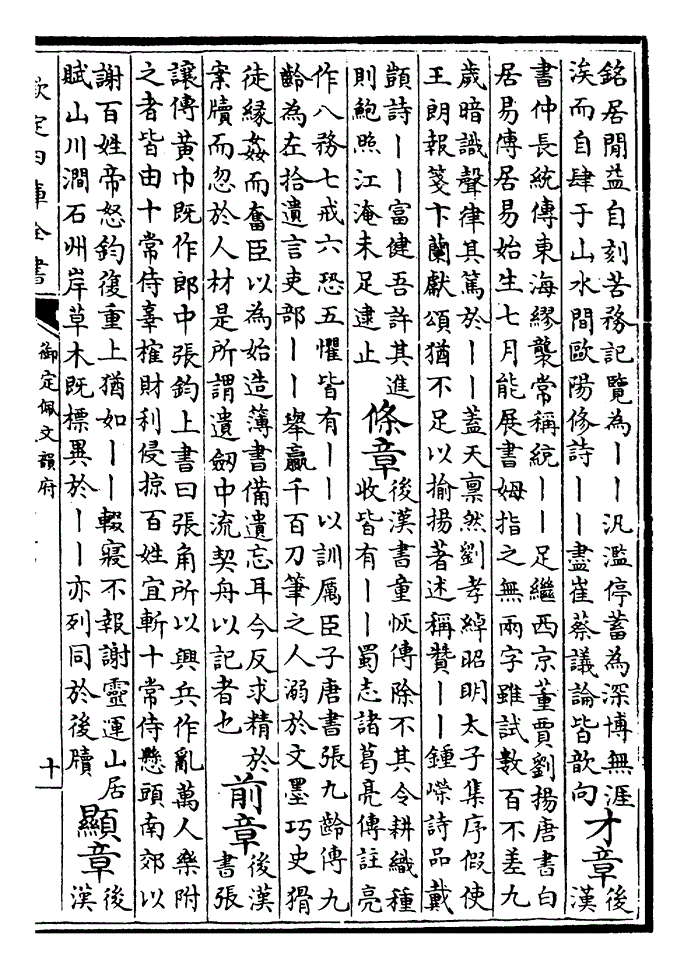 銘居閒益自刻苦務記覽為丨丨汎濫停蓄為深博無涯
涘而自肆于山水間歐陽修詩丨丨盡崔蔡議論皆歆向
才章
後
漢
書仲長統傳東海繆襲常稱統丨丨足繼西京董賈劉揚唐書白
居易傳居易始生七月能展書姆指之無兩字雖試數百不差九
歲暗識聲律其篤於丨丨蓋天稟然劉孝綽昭明太子集序假使
王朗報箋卞蘭獻頌猶不足以揄揚著述稱贊丨丨鍾嶸詩品戴
顗詩丨丨富健吾許其進
則鮑照江淹未足逮止
條章
後漢書童恢傳除不其令耕織種
收皆有丨丨蜀志諸葛亮傳註亮
作八務七戒六恐五懼皆有丨丨以訓厲臣子唐書張九齡傳九
齡為左拾遺言吏部丨丨舉贏千百刀筆之人溺於文墨巧史猾
徒緣姦而奮臣以為始造簿書備遺忘耳今反求精於
案牘而忽於人材是所謂遺劒中流契舟以記者也
前章
後漢
書張
讓傳黃巾既作郎中張鈞上書曰張角所以興兵作亂萬人樂附
之者皆由十常侍辜榷財利侵掠百姓宜斬十常侍懸頭南郊以
謝百姓帝怒鈞復重上猶如丨丨輟寢不報謝靈運山居
賦山川澗石州岸草木既標異於丨丨亦列同於後牘
顯章
後
漢
欽定四庫全書
御定佩文韻府
十